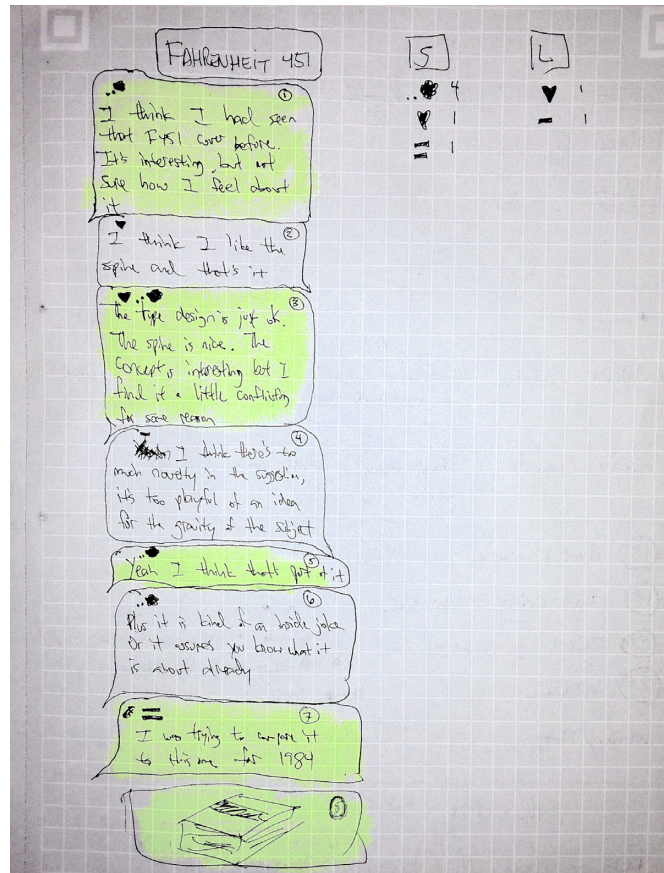 FAHRENHEIT 451
S
L
4
1
1
1
1
1
I think I had seen
that F451 cover before.
It's interesting but not
sure how I feel about
it
2
I think I like the
spine and that's it
3
The type design is just ok.
The spine is nice. The
concept is interesting but I
find it a little conflicting
for some reason
4
I think there's too
much novelty in the suggestion,
it's too playful of an idea
for the gravity of the subject
5
Yeah I think that's part of it
6
Plus it is kind of an inside joke
Or it assumes you know what it
is about already
7
I was trying to compare it
to this one for 1984
8